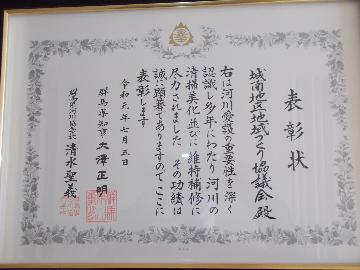 表彰状
城南地区地域づくり協議会殿
右は河川愛護の重要性を深く
認識し多年にわたり河川の
清掃美化並びに維持補修に
尽力されました その功績は
誠に顕著でありますのでここに
表彰します
令和元年七月五日
群馬県知事 大澤正明
群馬県河川協会長 清水聖義